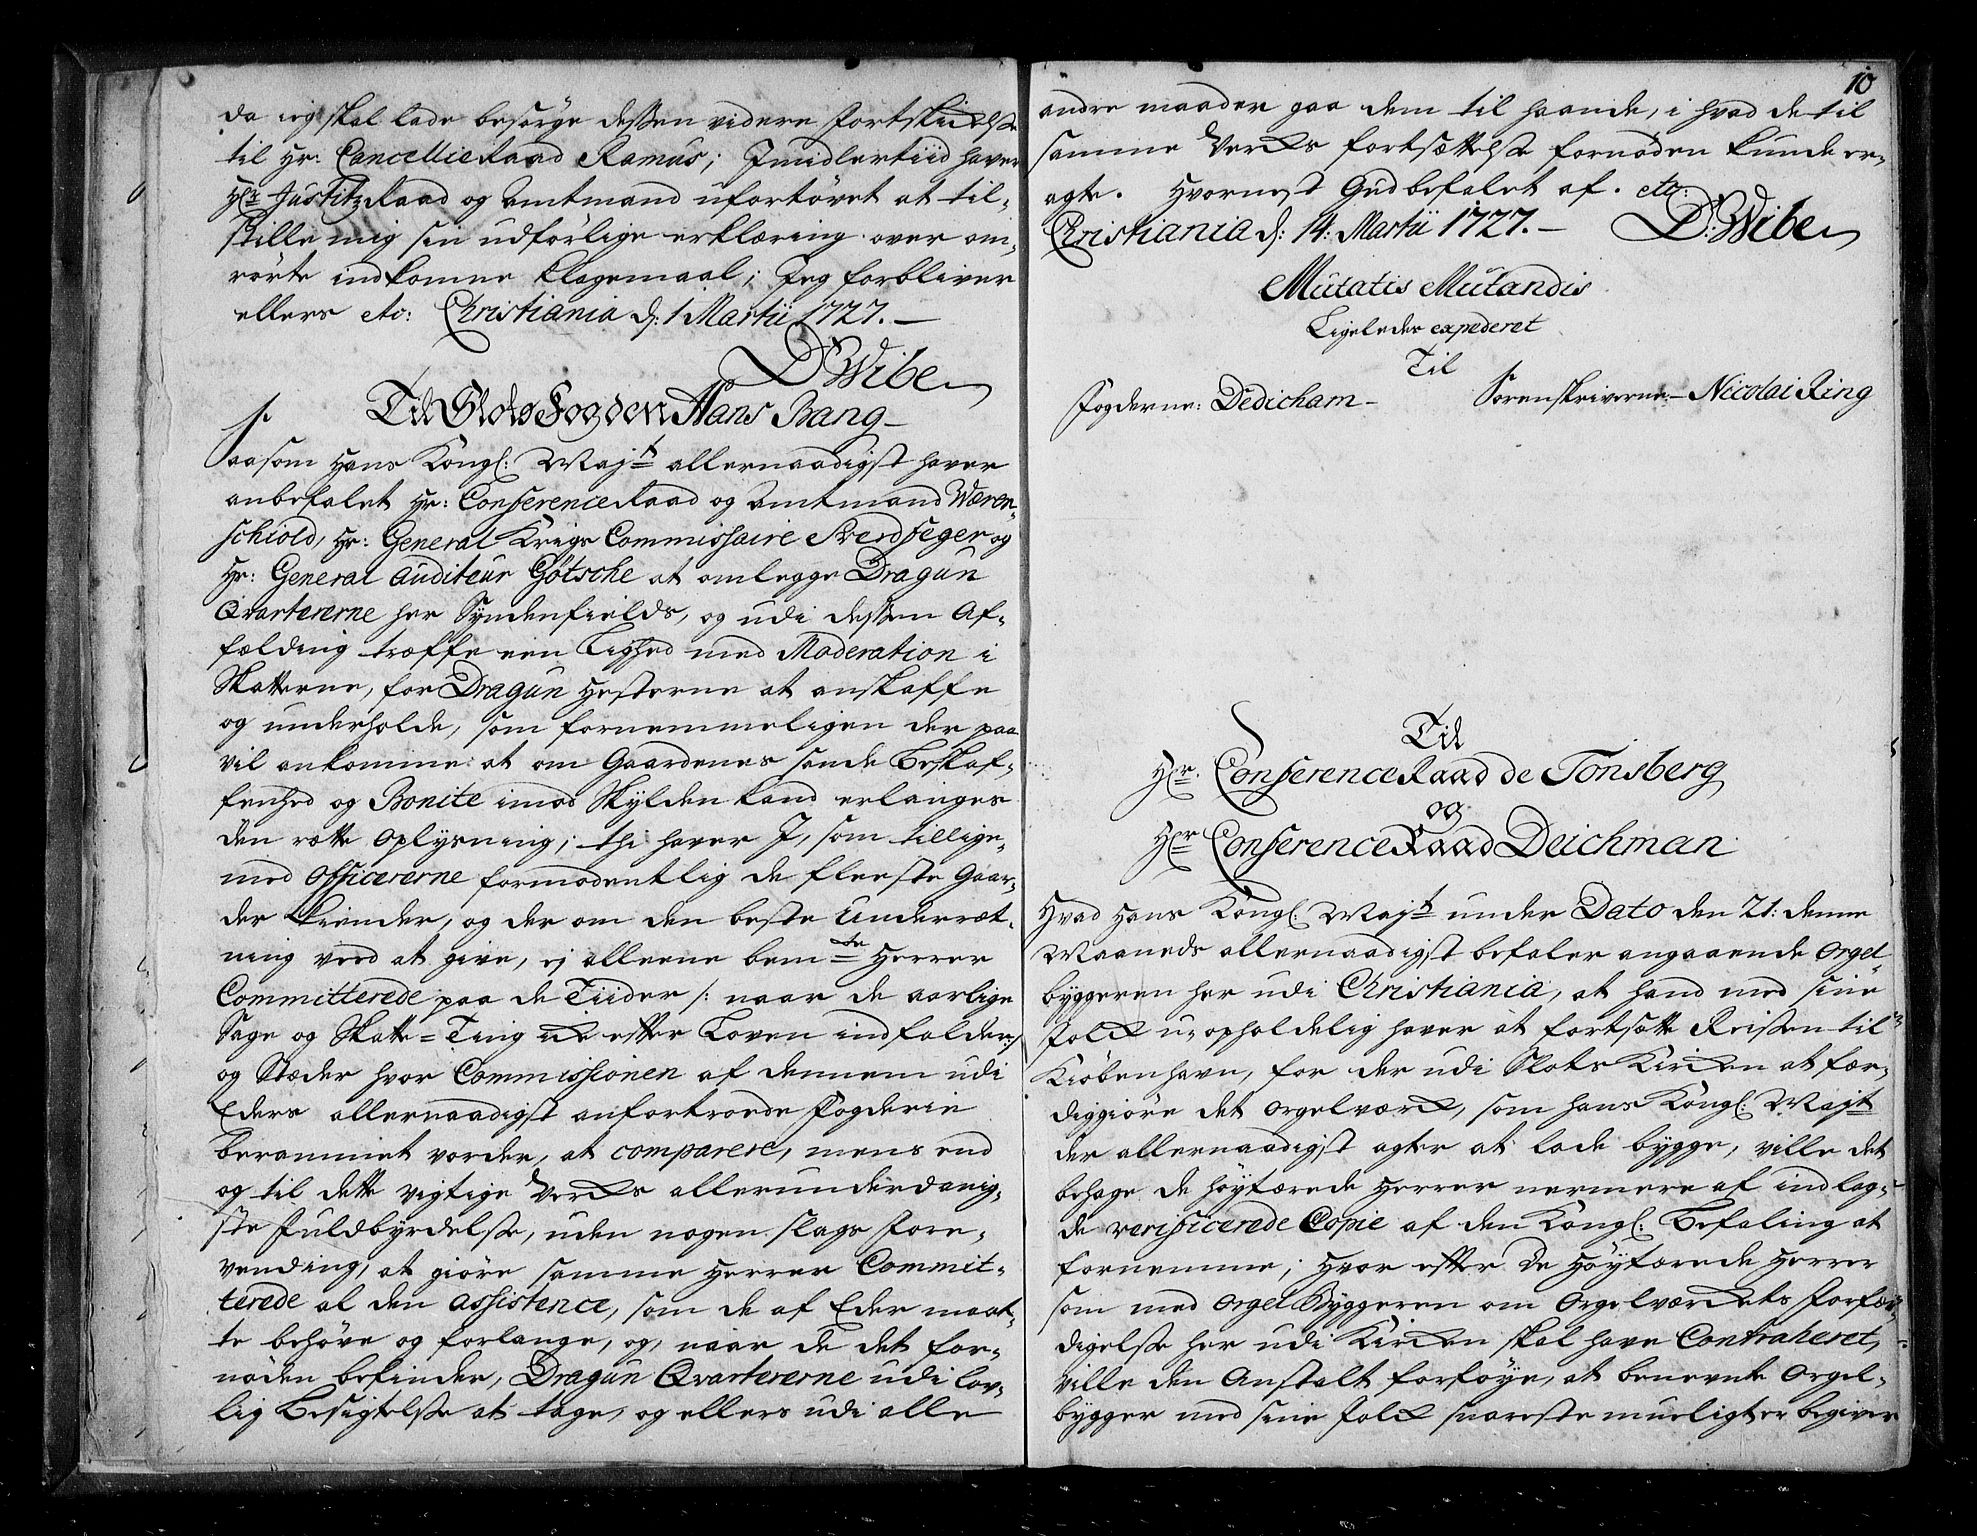 da ieg skal lade besørge dessen videre fortskickelse
til Hr: CancellieRaad Ramus; Imidlertiid haver
Hr. JustitzRaad og Amtmand ufortøvet at til-
stille mig sin udførlige erklæring over om-
rørte indkomne Klagemaal; Jeg forbliver
ellers etc: Christiania d: 1 Martii 1727.—
D Wibe
Til SlotsFogden Hans Bang—
Saasom Hans Kongl: Mayt allernaadigst haver
anbefalet Hr: ConferenceRaad og Amtmand Weren-
schiold, Hr: General Krigs Commissaire Sverdfeger og
Hr: General Auditeur Gøtsche at omlegge Dragun
Qvartererne her Syndenfields, og udi dessen Af-
fælding træffe een Lighed med Moderation i
Skatterne, for Dragun Hesterne at anskaffe
og underholde, som fornemmeligen der paa
vil ankomme at om Gaardenes sande Beskaf-
fenhed og Bonite imod Skylden kand erlanges
den rette Oplysning; thi haver I, som tillige-
med Officererne formodentlig de fleeste Gaar-
der kiender, og der om den beste Underret-
ning veed at give, ej alleene bemte Herrer
Committerede paa de Tiider /: naar de aarlige
Sage og Skatte-Ting icke efter Loven indfalder :/
og Stæder hvor Commissionen af dennem udi
Eders allernaadigst anfortroede Fogderie
berammet vorder, at comparere, mens end
og til dette vigtige Vercks allerunderdanig-
ste Fuldbyrdelse, uden nogen slags Fore-
vending, at giøre samme Herrer Commit-
terede al den assistence, som de af Eder maat-
te behøve og forlange, og, naar de det for-
nøden befinder, Dragun Qvartererne udi lov-
lig Besigtelse at tage, og ellers udi alle
10
andre maader gaa dem til haande, i hvad de til
samme Vercks fortsættelse fornøden kunde er-
agte. Hvornest Gud befalet af. etc:
Christiania d: 14: Martii 1727.— D: Wibe
Mutatis Mutandis
Ligeledes expederet
Til
Fogderne: Dedicham— Sorenskriverne:— Nicolai Ring
Til
Hr. ConferenceRaad de Tonsberg
og
Hr ConferenceRaad Deichman
Hvad Hans Kongl: Mayt under Dato den 21: denne
Maaneds allernaadigst befaler angaaende Orgel-
byggeren her udi Christiania, at hand med sine
Folck u-opholdelig haver at fortsette Reisen til
Kiøbenhavn, for der udi Slots Kircken at fær-
diggiøre det Orgelværck, som hans Kongl: Mayt
der allernaadigst agter at lade bygge, ville det
behage de høytærede Herrer nermere af indlag-
de verificerede Copie af den Kongl: Befaling at
fornemme; Hvor efter De Høytærede Herrer
som med Orgel Byggeren om Orgelværckets forfær-
digelse her udi Kircken skal have Contraheret,
ville den Anstalt forføye, at benevnte Orgel-
bygger med sine Folck snareste mueligt er begiver